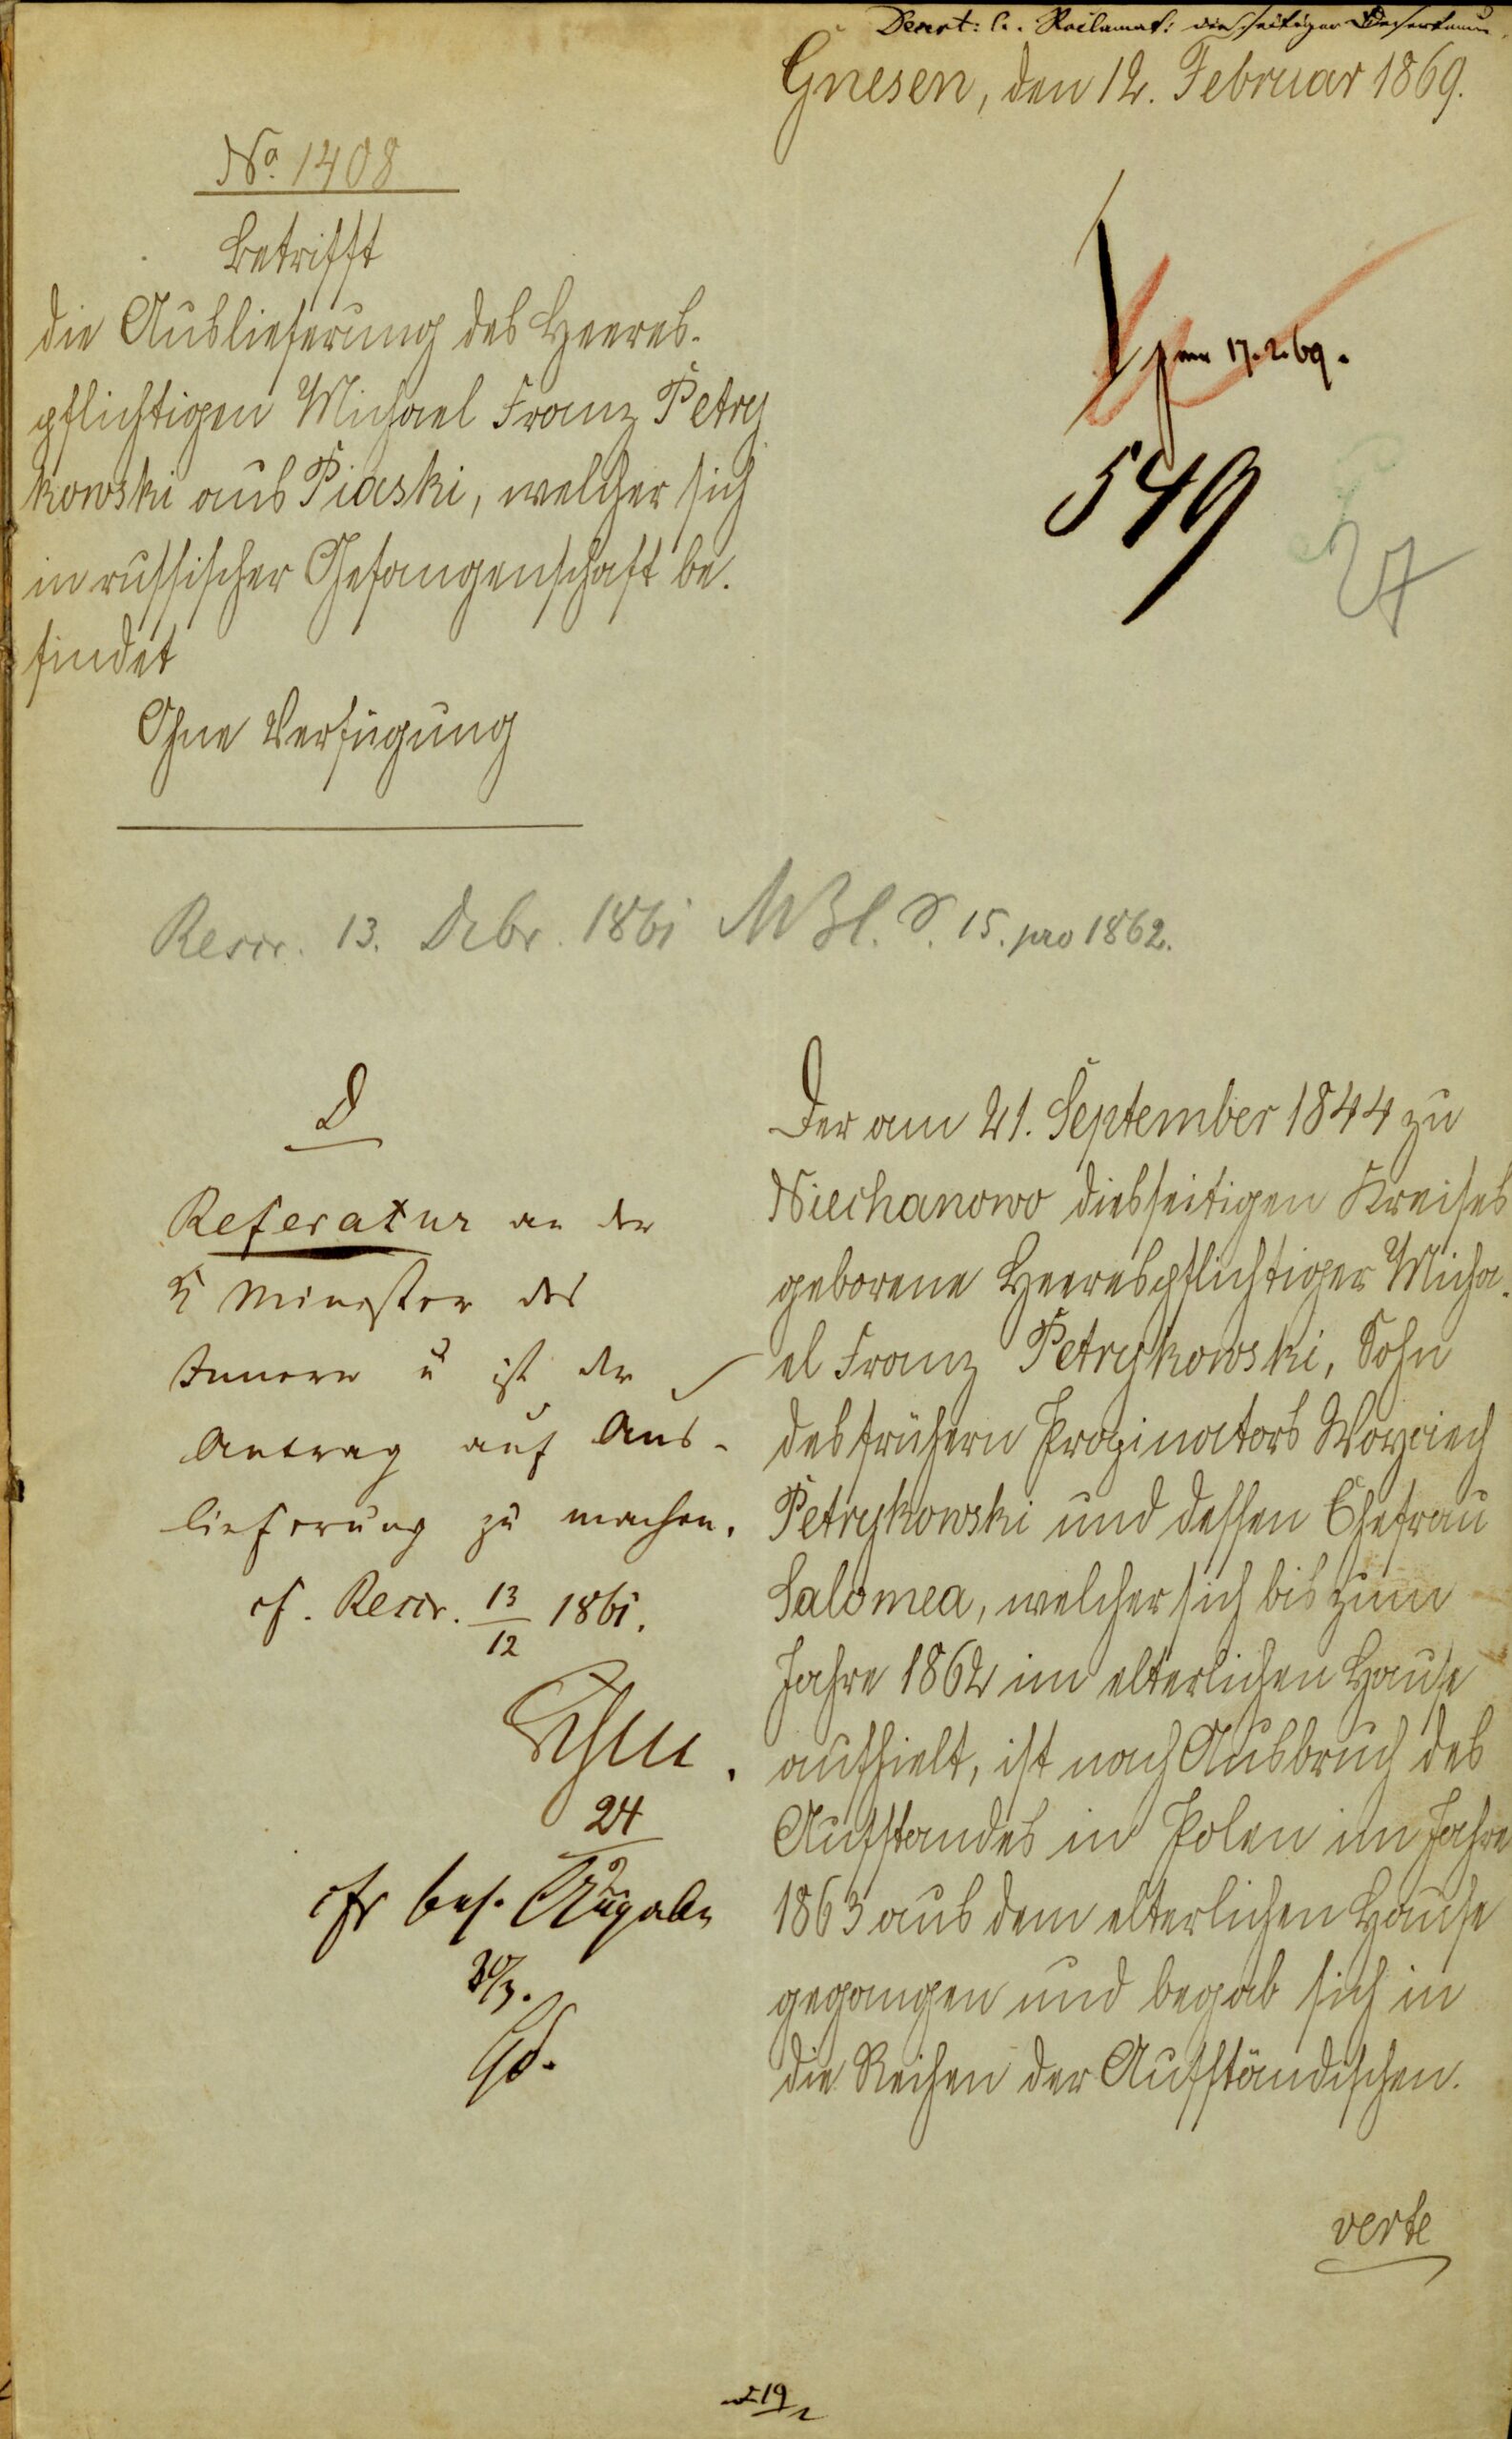 Desert: C. Reclamat: diesseitiger Deserteure.
Gnesen, den 12. Februar 1869.
No. 1408
Betrifft
die Auslieferung des Heeres-
pflichtigen Michael Franz Petry
kowski aus Piaski, welcher sich
in russischer Gefangenschaft be-
findet
Ohne Verfügung
17.2.69.
549
Rescr. 13. Debr. 1861 MBl. S. 15. pro 1862.
D
Referatur an den
K Minister des
Innern u ist der
Antrag auf Aus-
lieferung zu machen.
cf. Rescr. 13/12 1861.
24
30/3.
Der am 21. September 1844 zu
Niechanowo diesseitigen Kreises
geborene Heerespflichtiger Micha-
el Franz Petrykowski, Sohn
des frühern Propinators Woyciech
Petrykowski und dessen Ehefrau
Salomea, welcher sich bis zum
Jahre 1862 im elterlichen Hause
aufhielt, ist nach Ausbruch des
Aufstandes in Polen im Jahre
1863 aus dem elterlichen Hause
gegangen und begab sich in
die Reihen der Aufständischen.
verte
19/2